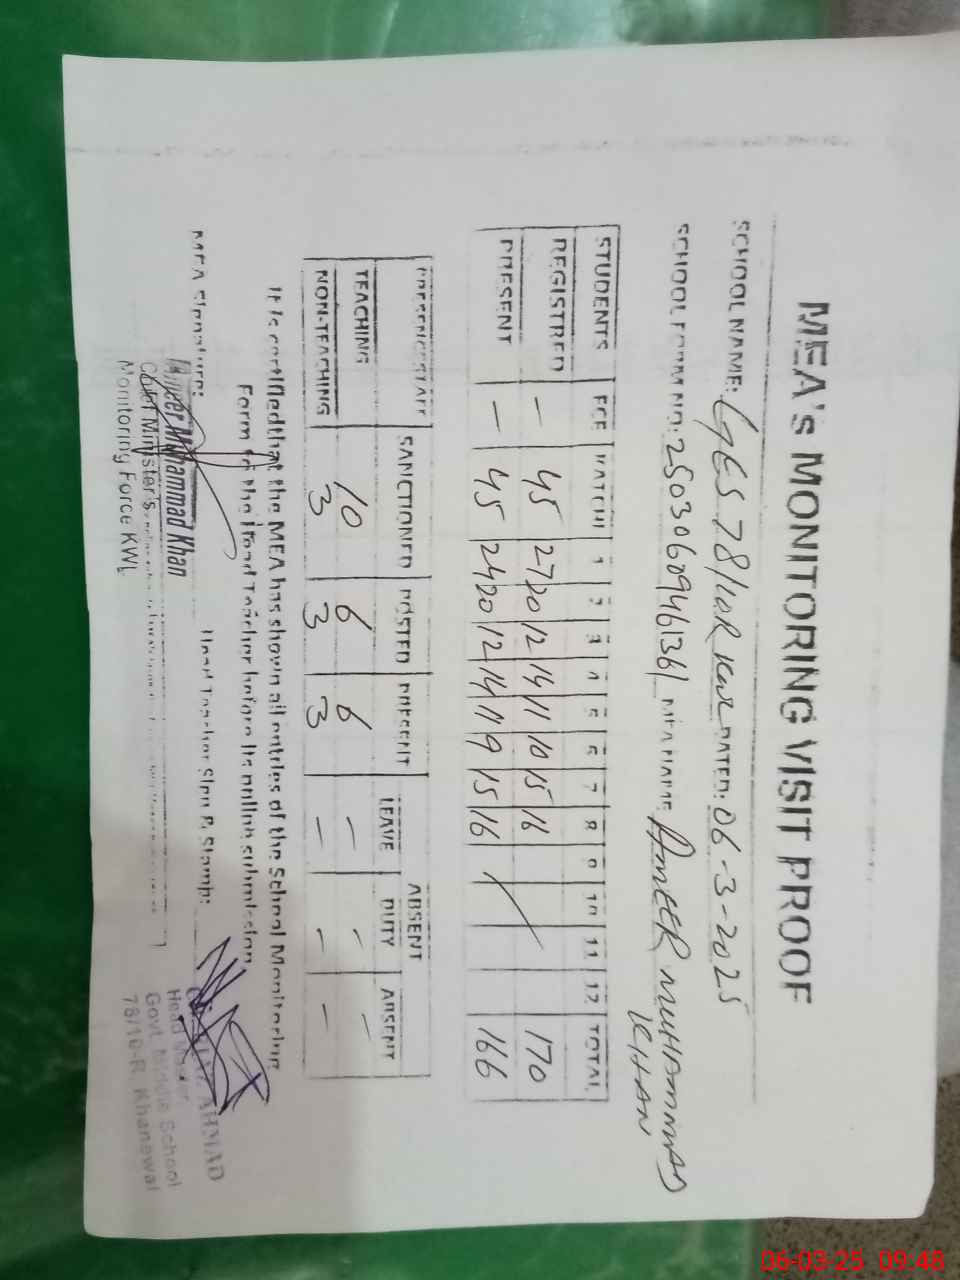 MEA's MONITORING VISIT PROOF
SCHOOL NAME: GES 78/10R KWL DATED: 06-3-2025
SCHOOL FORM NO: 25030609461361 MEA NAME: AMEER MUHAMMAD KHAN
STUDENTS ECE KATCHI 1 2 3 4 5 6 7 8 9 10 11 12 TOTAL
REGISTRED — 45 27 20 12 14 11 10 15 16 170
PRESENT — 45 24 20 12 14 11 9 15 16 166
PRESENCE STAFF SANCTIONED POSTED PRESENT ABSENT
LEAVE DUTY ABSENT
TEACHING 10 6 6 — — —
NON-TEACHING 3 3 3 — — —
It is certified that the MEA has shown all entries of the School Monitoring
Form to the Head Teacher before its online submission.
MEA Signature: Head Teacher Sign & Stamp:
Ameer Muhammad Khan
Chief Minister's
Monitoring Force KWL
AHMAD
Head Master
Govt. Middle School
78/10-R Khanewal
06-03-25 09:48